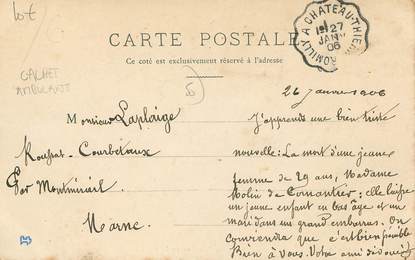 lot
CACHET
AMBULANT
CARTE POSTALE
Ce côté est exclusivement réservé à l'adresse
ROMILLY A CHATEAU-THIERRY
27
JANV
06
26 Janvier 1906
Monsieur Laplaige
Courbetaux
Par Montmirail
Marne
J'apprends une bien triste
nouvelle : La mort d'une jeune
femme de 29 ans, Madame
Molin de : elle laisse
un jeune enfant en bas âge et un
mari dans un grand embarras. On
comprendra que c'est bien pénible
Bien à vous. Votre ami dévoué